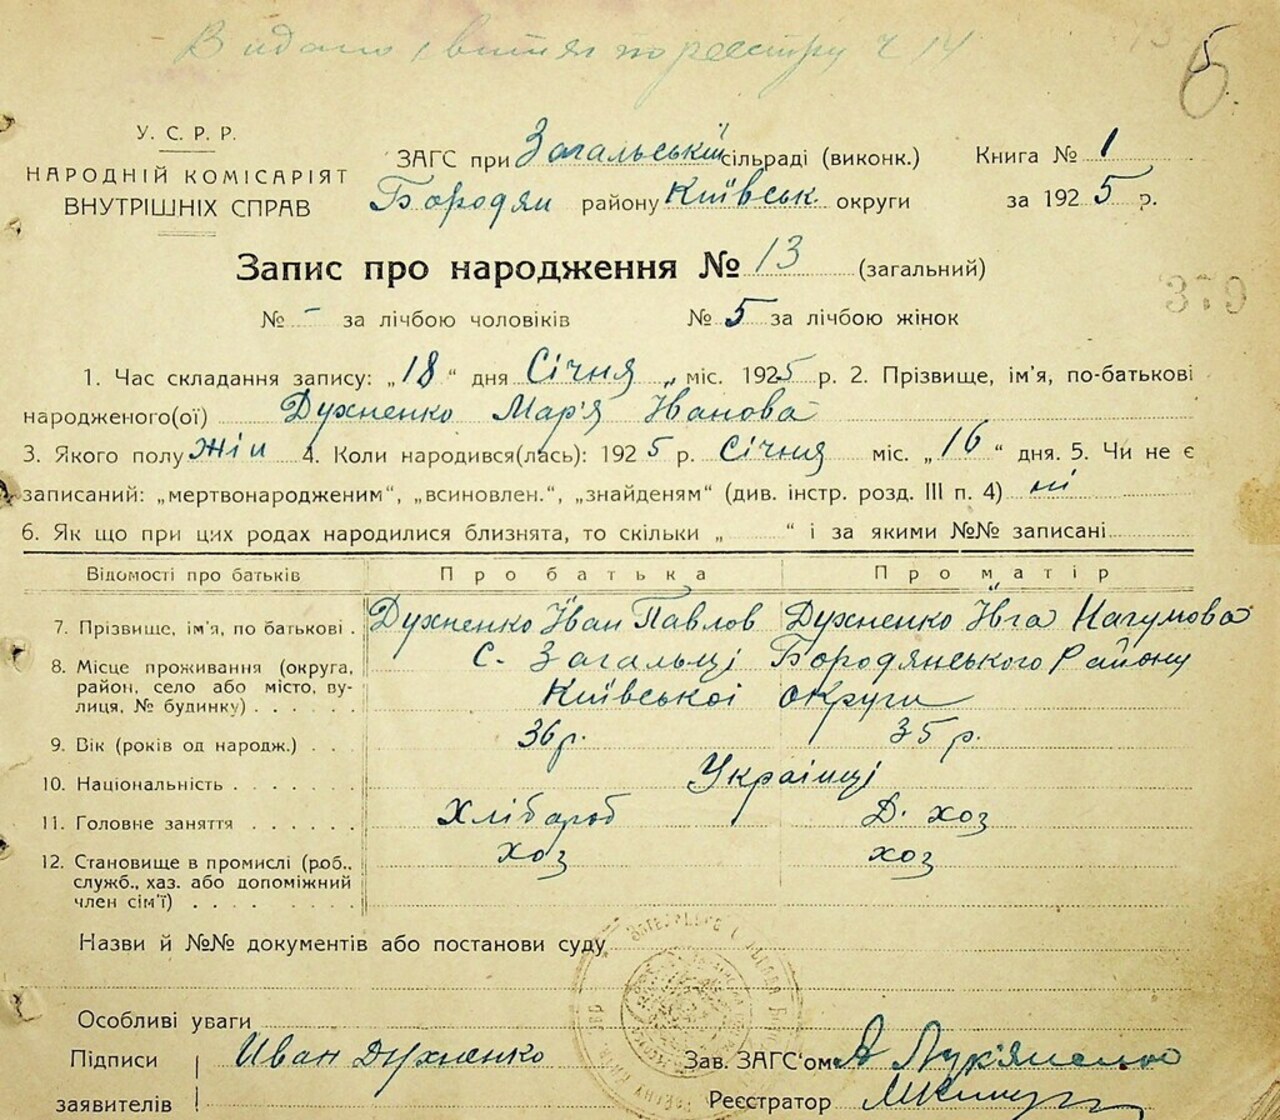 Видано витяг по реєстру Ч 14
5
У. С. Р. Р.
НАРОДНІЙ КОМІСАРІЯТ
ВНУТРІШНІХ СПРАВ
ЗАГС при Загальській сільраді (виконк.)
Бородян району Київськ. округи
Книга № 1
за 1925 р.
Запис про народження № 13 (загальний)
379
№ - за лічбою чоловіків № 5 за лічбою жінок
1. Час складання запису: „18“ дня Січня міс. 1925 р. 2. Прізвище, ім'я, по-батькові
народженого(ої) Духненко Мар'я Іванова
3. Якого полу жін 4. Коли народився(лась): 1925 р. Січня міс. „16“ дня. 5. Чи не є
записаний: „мертвонародженим“, „всиновлен.“, „знайденям“ (див. інстр. розд. III п. 4) ні
6. Як що при цих родах народилися близнята, то скільки „ “ і за якими №№ записані
Відомості про батьків Про батька Про матір
7. Прізвище, ім'я, по батькові . Духненко Йван Павлов Духненко Ївга Нагумова
8. Місце проживання (округа, с. Загальці Бородянського Району
район, село або місто, ву-
лиця, № будинку) . . . . . . Київської округи
9. Вік (років од народж.) . . . 36 р. 35 р.
10. Національність . . . . . . . Українці
11. Головне заняття . . . . . . Хлібороб Д. хоз
12. Становище в промислі (роб., хоз хоз
служб., хаз. або допоміжний
член сім'ї) . . . . . . . . .
Назви й №№ документів або постанови суду
Особливі уваги
Підписи Иван Духненко
заявителів
Зав. ЗАГС'ом Лук'яненко
Реєстратор